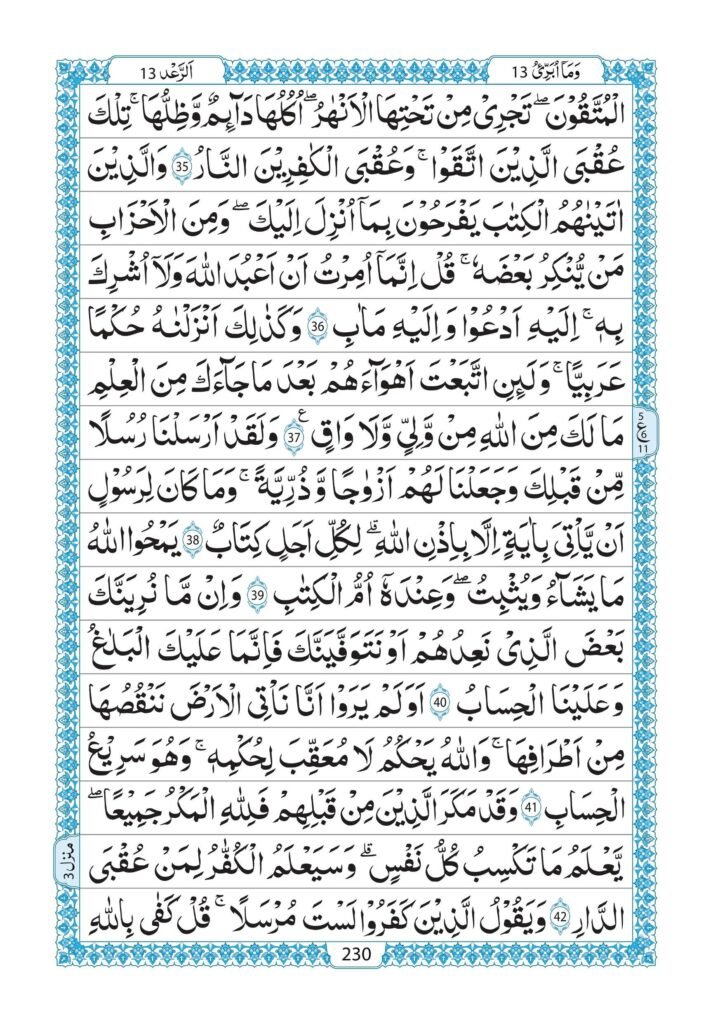 وَمَاۤ اُبَرِّئُ 13
اَلرَّعْد 13
الْمُتَّقُوْنَ ؕ تَجْرِیْ مِنْ تَحْتِهَا الْاَنْهٰرُ ؕ اُكُلُهَا دَآىِٕمٌ وَّظِلُّهَا ؕ تِلْكَ
عُقْبَی الَّذِیْنَ اتَّقَوْا ۖۗ وَّعُقْبَی الْكٰفِرِیْنَ النَّارُ 35 وَالَّذِیْنَ
اٰتَیْنٰهُمُ الْكِتٰبَ یَفْرَحُوْنَ بِمَاۤ اُنْزِلَ اِلَیْكَ ؕ وَمِنَ الْاَحْزَابِ
مَنْ یُّنْكِرُ بَعْضَهٗ ؕ قُلْ اِنَّمَاۤ اُمِرْتُ اَنْ اَعْبُدَ اللّٰهَ وَلَاۤ اُشْرِكَ
بِهٖ ؕ اِلَیْهِ اَدْعُوْا وَاِلَیْهِ مَاٰبِ 36 وَكَذٰلِكَ اَنْزَلْنٰهُ حُكْمًا
عَرَبِیًّا ؕ وَلَىِٕنِ اتَّبَعْتَ اَهْوَآءَهُمْ بَعْدَ مَا جَآءَكَ مِنَ الْعِلْمِ
مَا لَكَ مِنَ اللّٰهِ مِنْ وَّلِیٍّ وَّلَا وَاقٍ 37 ع وَلَقَدْ اَرْسَلْنَا رُسُلًا
5
ع
6
11
مِّنْ قَبْلِكَ وَجَعَلْنَا لَهُمْ اَزْوٰجًا وَّذُرِّیَّةً ؕ وَمَا كَانَ لِرَسُوْلٍ
اَنْ یَّاْتِیَ بِاٰیَةٍ اِلَّا بِاِذْنِ اللّٰهِ ؕ لِكُلِّ اَجَلٍ كِتَابٌ 38 یَمْحُوا اللّٰهُ
مَا یَشَآءُ وَیُثْبِتُ ۖ وَعِنْدَهٗۤ اُمُّ الْكِتٰبِ 39 وَاِنْ مَّا نُرِیَنَّكَ
بَعْضَ الَّذِیْ نَعِدُهُمْ اَوْ نَتَوَفَّیَنَّكَ فَاِنَّمَا عَلَیْكَ الْبَلٰغُ
وَعَلَیْنَا الْحِسَابُ 40 اَوَلَمْ یَرَوْا اَنَّا نَاْتِی الْاَرْضَ نَنْقُصُهَا
مِنْ اَطْرَافِهَا ؕ وَاللّٰهُ یَحْكُمُ لَا مُعَقِّبَ لِحُكْمِهٖ ؕ وَهُوَ سَرِیْعُ
الْحِسَابِ 41 وَقَدْ مَكَرَ الَّذِیْنَ مِنْ قَبْلِهِمْ فَلِلّٰهِ الْمَكْرُ جَمِیْعًا ؕ
یَّعْلَمُ مَا تَكْسِبُ كُلُّ نَفْسٍ ؕ وَسَیَعْلَمُ الْكُفّٰرُ لِمَنْ عُقْبَی
منزل 3
الدَّارِ 42 وَیَقُوْلُ الَّذِیْنَ كَفَرُوْا لَسْتَ مُرْسَلًا ؕ قُلْ كَفٰی بِاللّٰهِ
230